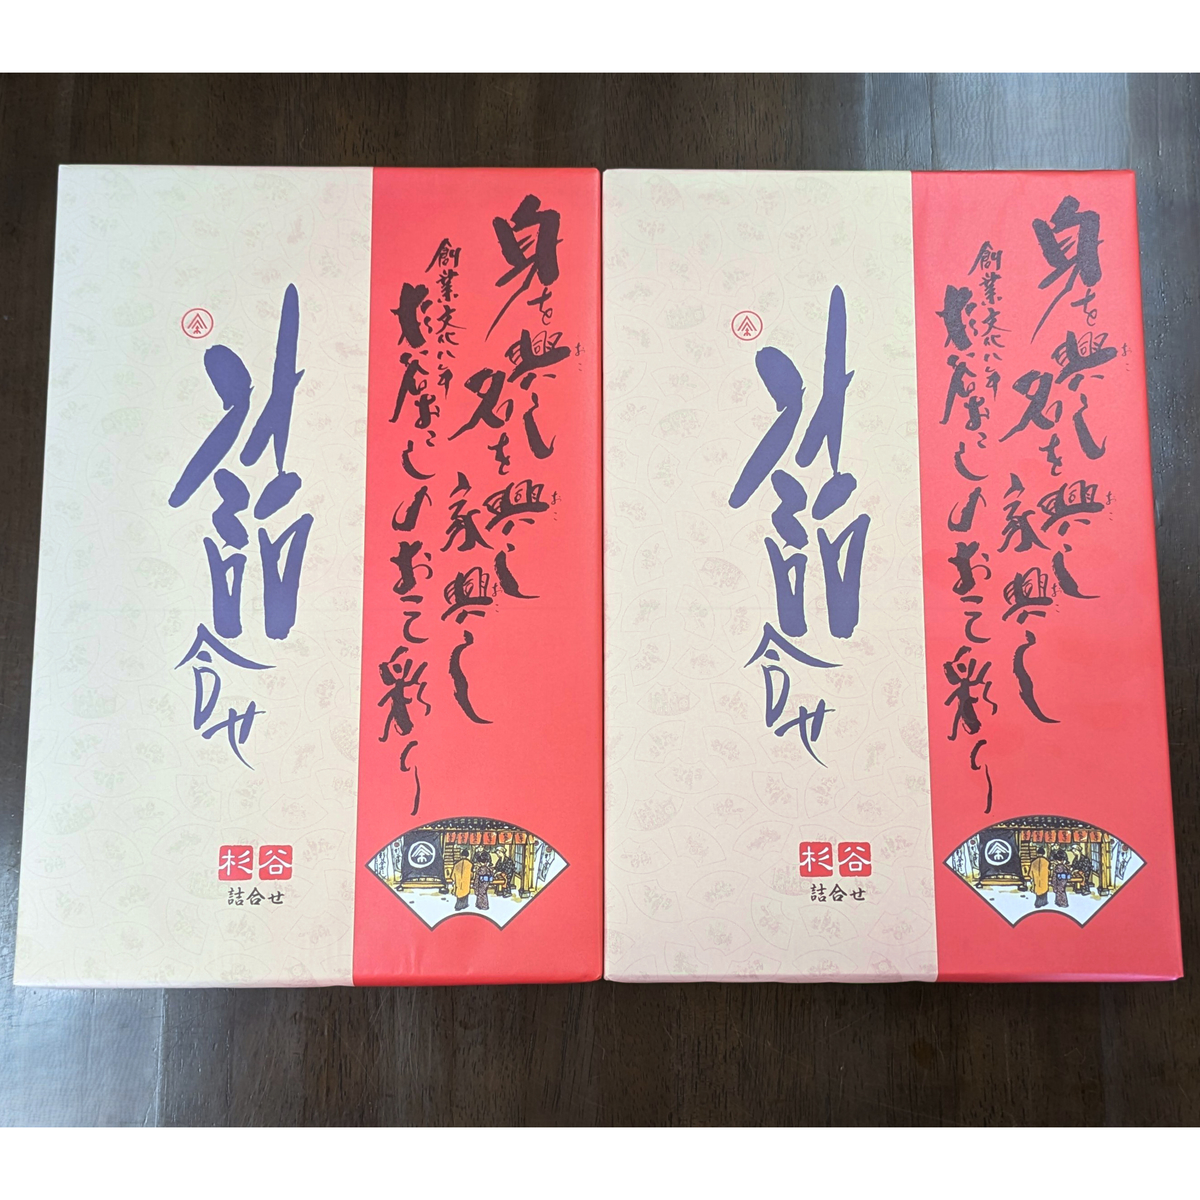 身を興し
名を興し
家興し
創業文化八年
杉谷おこしのおこし彩り
詰合せ
杉谷
詰合せ
身を興し
名を興し
家興し
創業文化八年
杉谷おこしのおこし彩り
詰合せ
杉谷
詰合せ